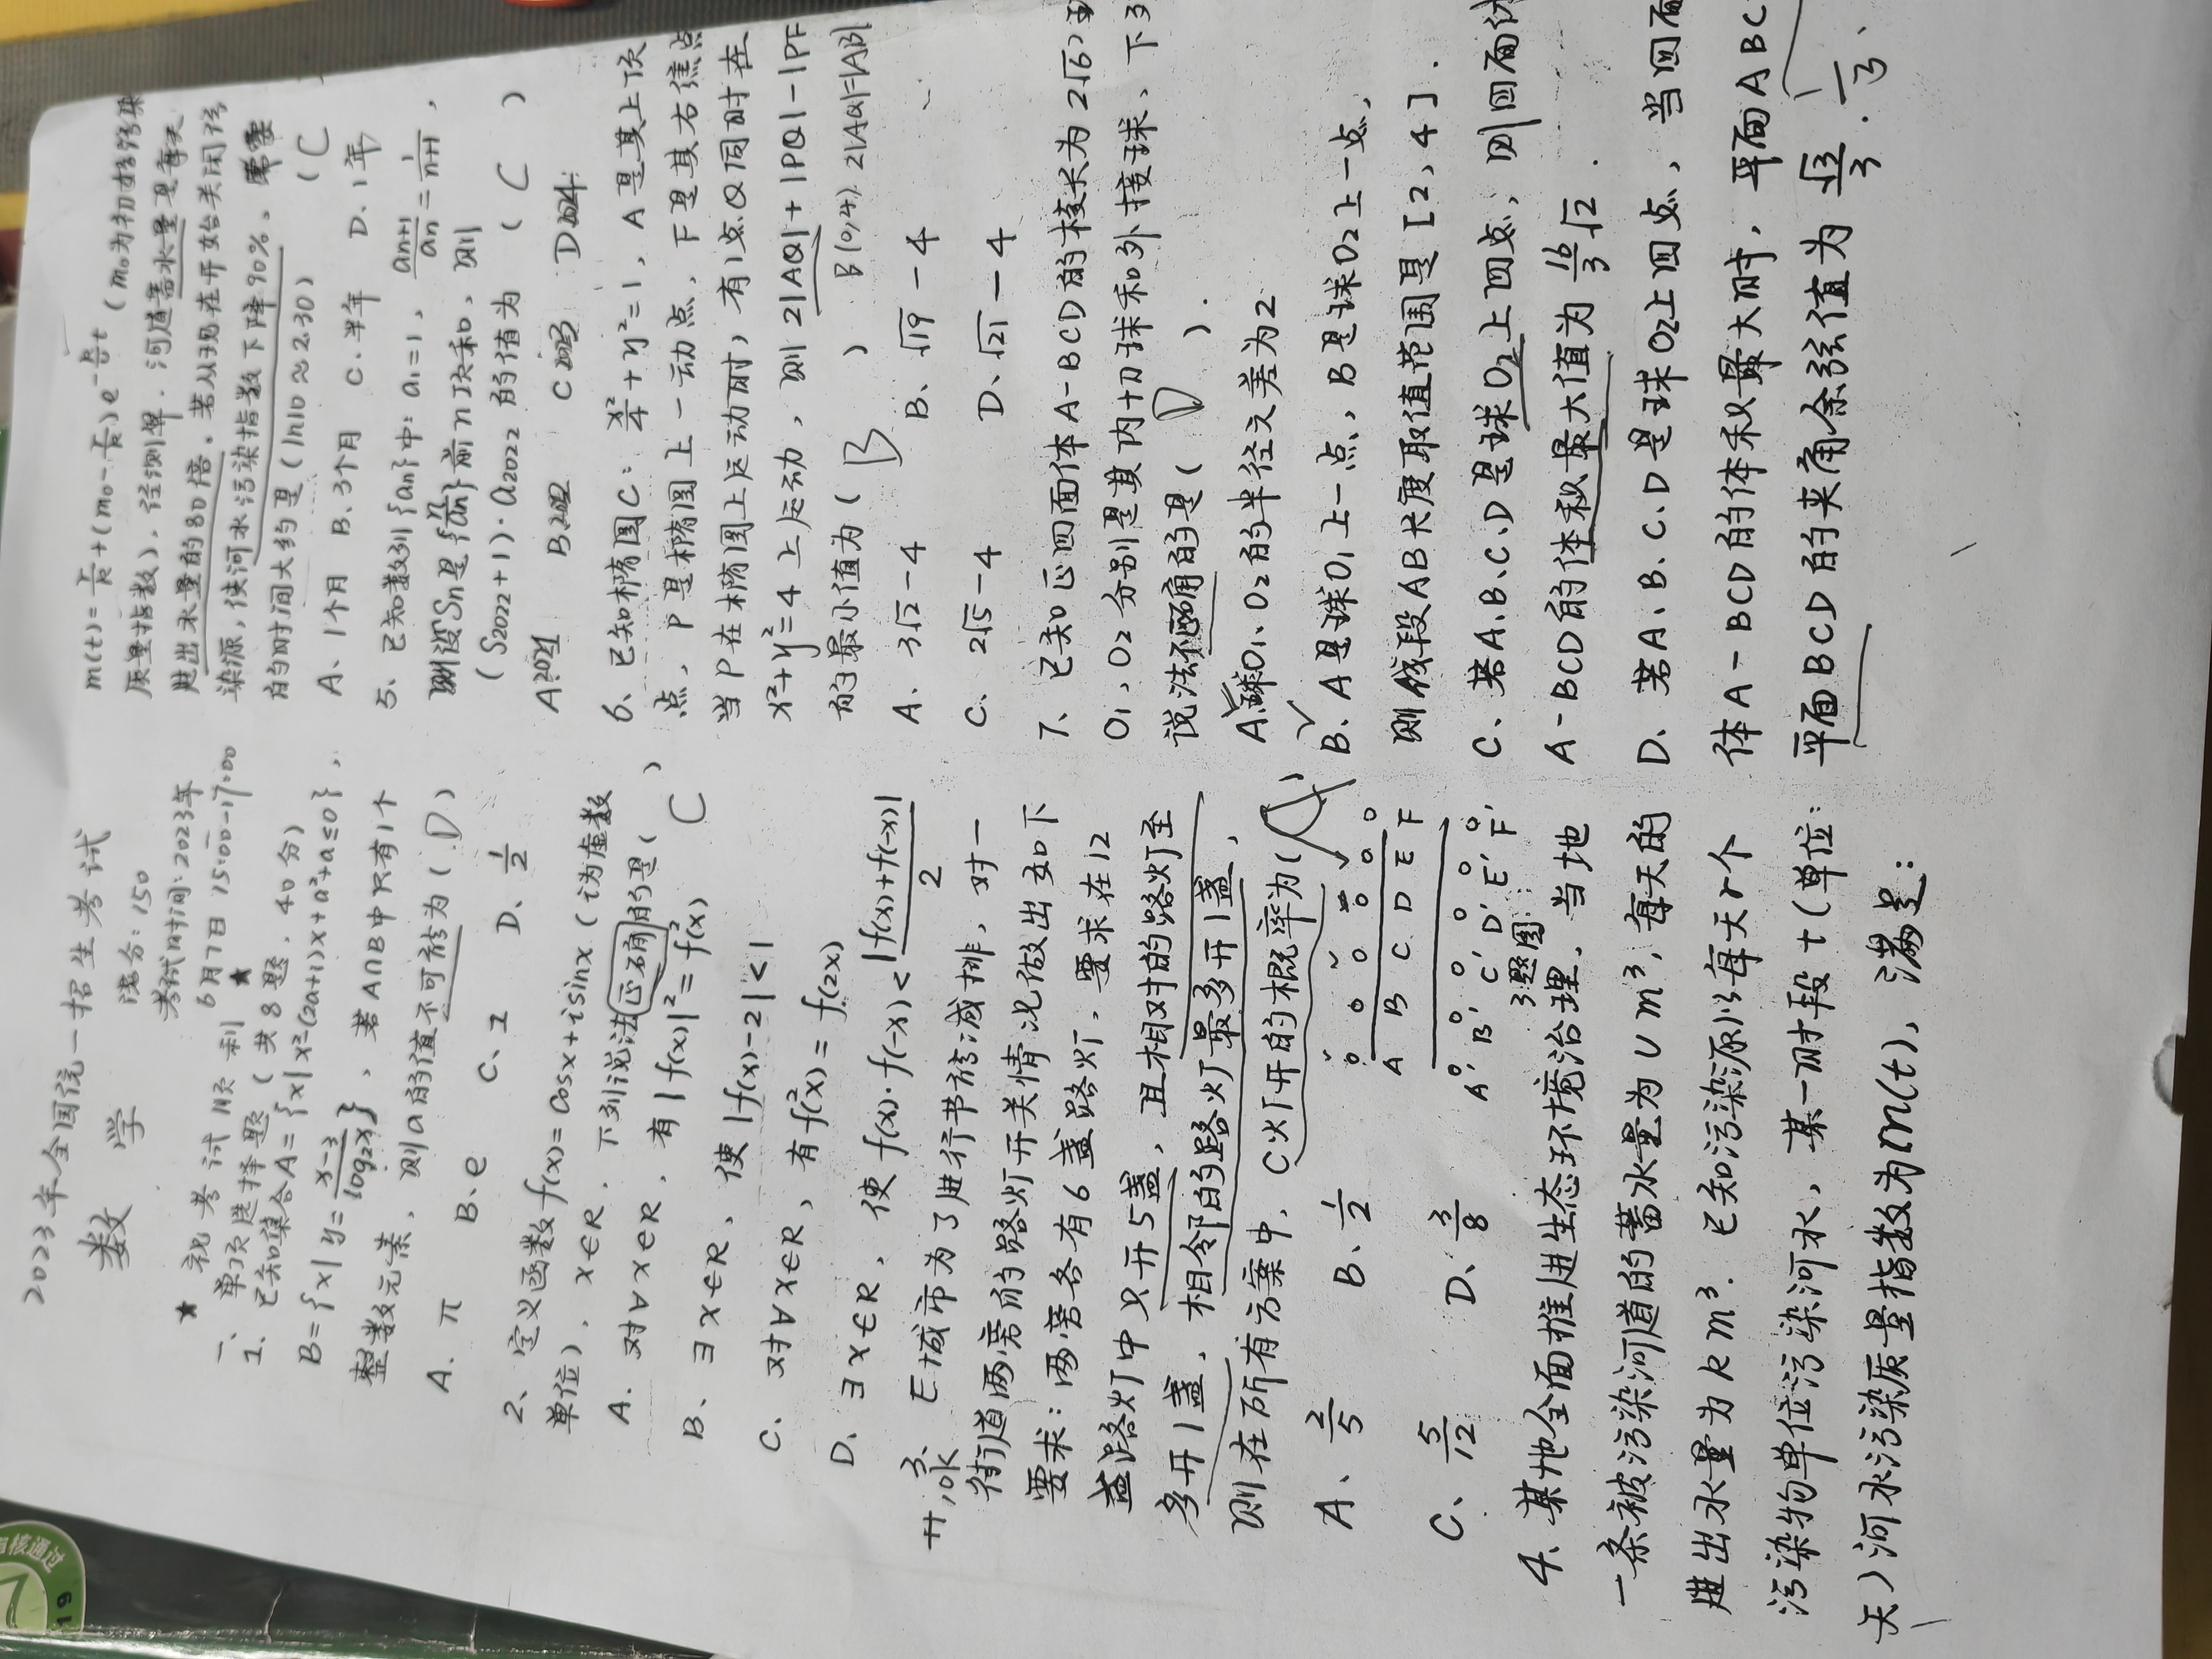 2023年全国统一招生考试
数 学
满分:150
考试时间:2023年
6月7日 15:00-17:00
★ 祝考试顺利 ★
一、单项选择题(共8题,40分)
1、已知集合A={x|x²-(2a+1)x+a²+a≤0},
B={x|y=\frac{x-3}{log₂x}},若A∩B中只有1个
整数元素,则a的值不可能为(D)
A. π B. e C. 1 D. \frac{1}{2}
2、定义函数f(x)=cosx+isinx(i为虚数
单位),x∈R,下列说法正确的是( )
C
A. 对∀x∈R,有|f(x)|²=f²(x)
B. ∃x∈R,使|f(x)-2|<1
C. 对∀x∈R,有f²(x)=f(2x)
D、∃x∈R,使f(x)·f(-x)<\frac{|f(x)+f(-x)|}{2}
3、E城市为了进行节能减排,对一
街道两旁的路灯开关情况做出如下
要求:两旁各有6盏路灯,要求在12
盏路灯中只开5盏,且相对的路灯至
多开1盏,相邻的路灯最多开1盏,
则在所有方案中,C灯开的概率为( )
A、\frac{2}{5} B、\frac{1}{2}
C、\frac{5}{12} D、\frac{3}{8}
A B C D E F
A' B' C' D' E' F'
3题图
4、某地全面推进生态环境治理,当地
一条被污染河道的蓄水量为U m³,每天的
进出水量为k m³.已知污染源以每天r个
污染物单位污染河水,某一时段t(单位:
天)河水污染质量指数为m(t),满足:
m(t)=\frac{r}{k}+(m₀-\frac{r}{k})e^{-\frac{k}{U}t}(m₀为初始污染
质量指数),经测算,河道蓄水量是每天
进出水量的80倍,若从现在开始关闭污
染源,使河水污染指数下降90%,需要
的时间大约是(ln10≈2.30) (C
A、1个月 B、3个月 C、半年 D、1年
5、已知数列{aₙ}中:a₁=1,\frac{aₙ₊₁}{aₙ}=\frac{1}{n+1},
设Sₙ是{\frac{n}{aₙ}}前n项和,则
(S₂₀₂₂+1)·a₂₀₂₂的值为 ( C )
A.2021 B.2022 C.2023 D.2024
6、已知椭圆C:\frac{x²}{4}+y²=1,A是其上顶
点,P是椭圆上一动点,F是其右焦点
当P在椭圆上运动时,有1点Q同时在
x²+y²=4上运动,则2|AQ|+|PQ|-|PF
的最小值为( B ) B(0,4) 2|AQ|=|AB|
A. 3√2-4 B、√19-4
C. 2√5-4 D、√21-4
7、已知正四面体A-BCD的棱长为2√6,
O₁,O₂分别是其内切球和外接球,下
说法正确的是( D ).
A、球O₁、O₂的半径之差为2
B.A是球O₁上一点,B是球O₂上一点,
则线段AB长度取值范围是[2,4].
C、若A、B、C、D是球O₂上四点,则四面体
A-BCD的体积最大值为\frac{16}{3}√2.
D、若A、B、C、D是球O₂上四点,当四面
体A-BCD的体积最大时,平面ABC
平面BCD的夹角余弦值为\frac{√3}{3}. \frac{1}{3}、
审核通过
19